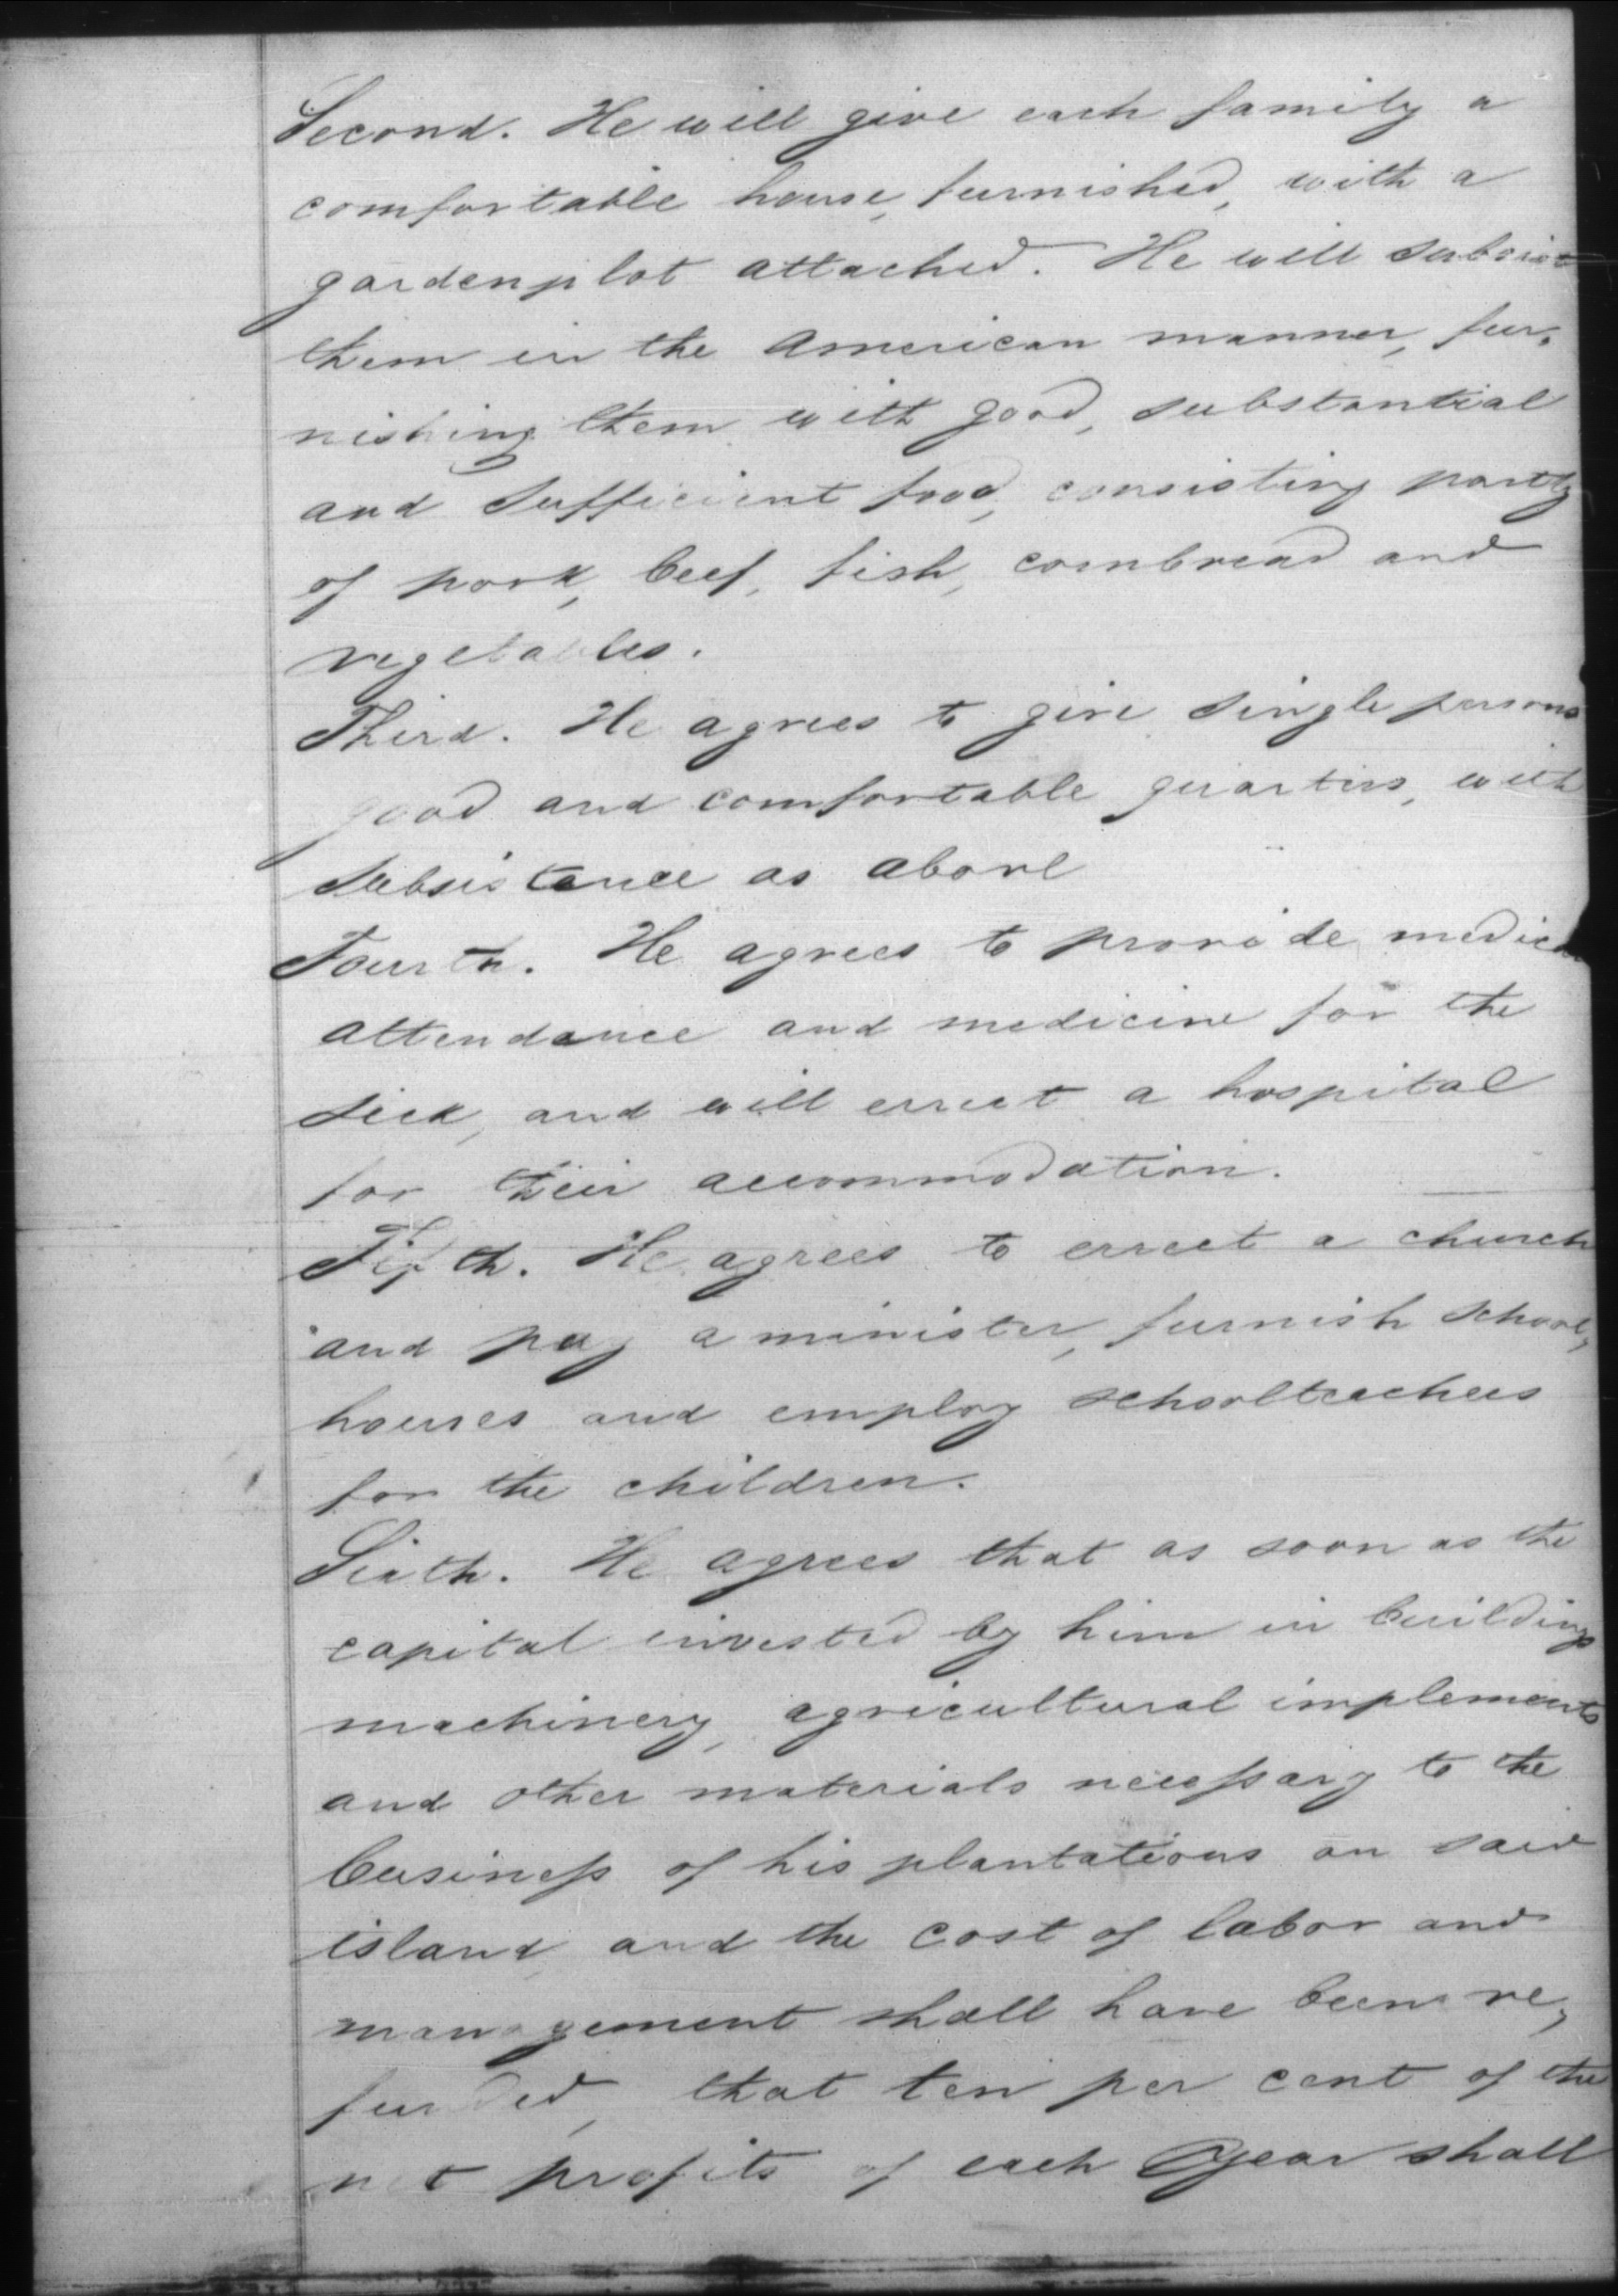 Second. He will give each family a
comfortable house, furnished, with a
gardenplot attached. He will subsist
them in the American manner, fur-
nishing them with good, substantial
and sufficient food, consisting partly
of pork, beef, fish, cornbread and
vegetables.
Third. He agrees to give single persons
good and comfortable quarters, with
subsistance as above
Fourth. He agrees to provide medical
attendance and medicine for the
sick, and will errect a hospital
for their accommodation.
Fifth. He agrees to errect a church
and pay a minister, furnish school,
houses and employ schoolteachers
for the children.
Sixth. He agrees that as soon as the
capital invested by him in buildings
machinery, agricultural implements
and other materials necessary to the
business of his plantations on said
island, and the cost of labor and
management shall have been re,
funded, that ten per cent of the
net profits of each year shall